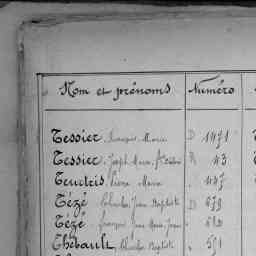 Nom et prénoms Numéro
Tessier, François Marie D 1471
Tessier, Joseph Marie R 43
Pierre Marie 447
Tézé Charles Jean Baptiste D 679
Tézé François Jean Marie 680
Thébault, Charles Baptiste 551